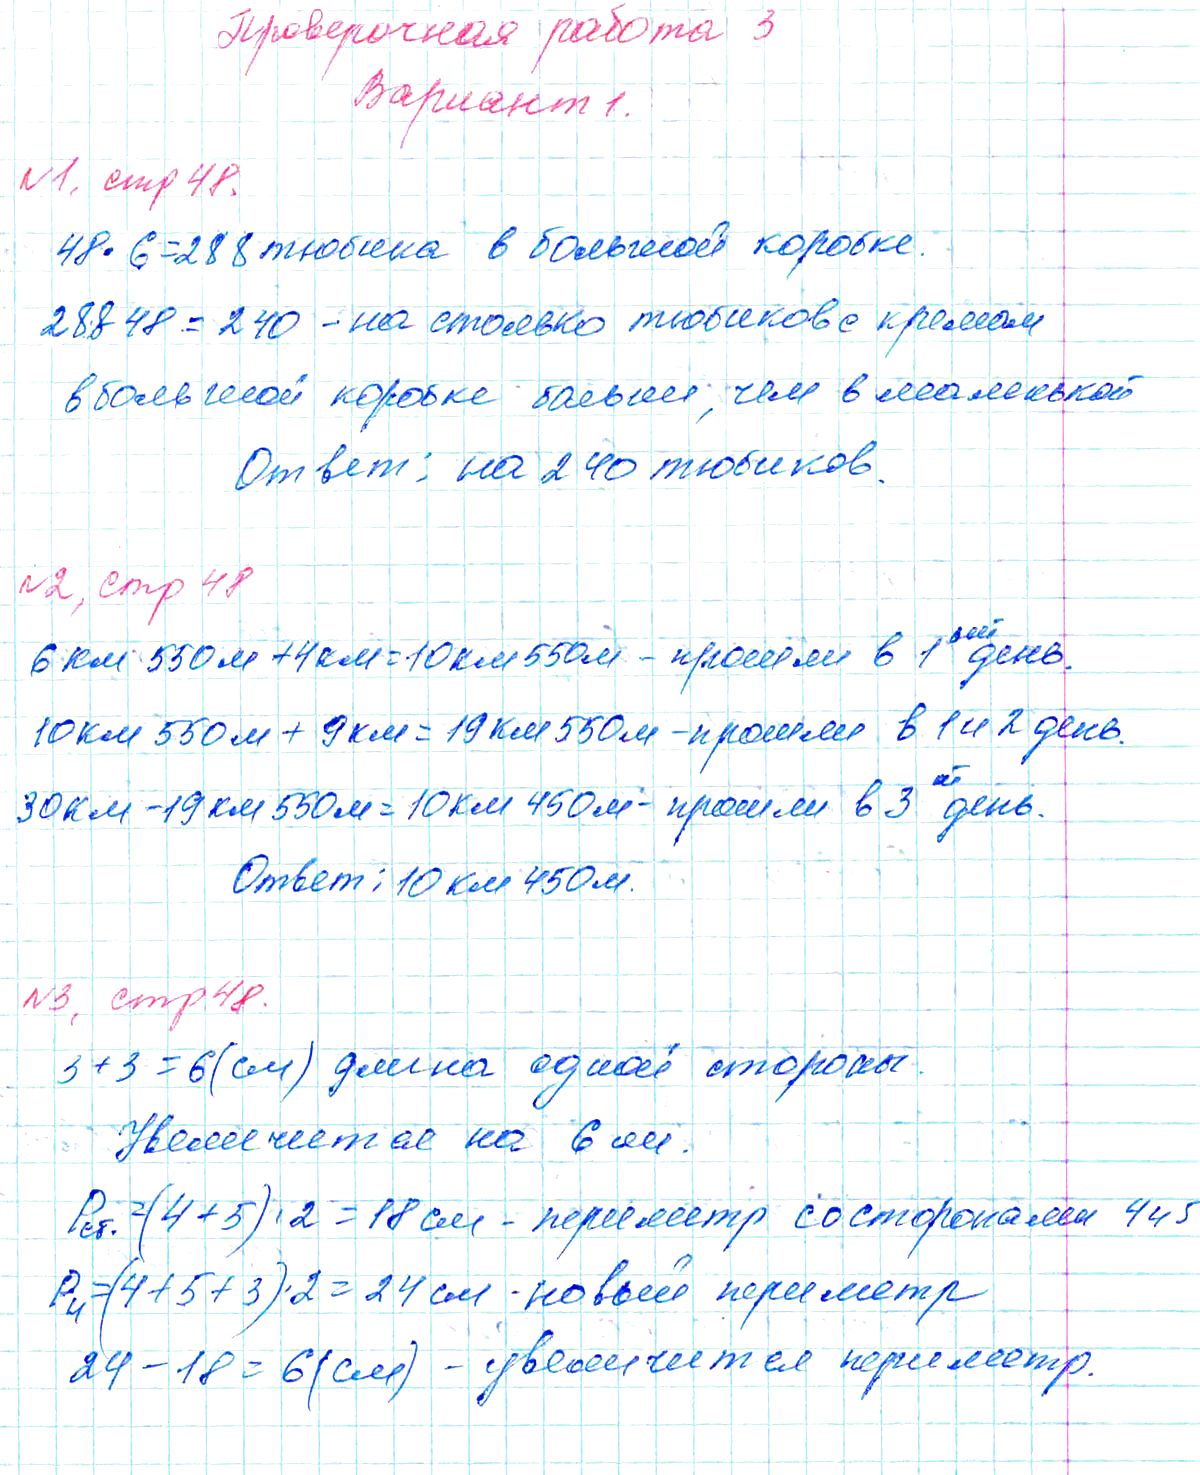 Проверочная работа 3
Вариант 1.
№1, стр 48.
48 · 6 = 288 тюбика в большой коробке.
288 48 = 240 - на столько тюбиков с кремом
в большой коробке больше, чем в маленькой
Ответ: на 240 тюбиков.
№2, стр 48
6 км 550 м + 4 км = 10 км 550 м - прошли в 1 ый день.
10 км 550 м + 9 км = 19 км 550 м - прошли в 1 и 2 день.
30 км - 19 км 550 м = 10 км 450 м - прошли в 3 ий день.
Ответ: 10 км 450 м.
№3, стр 48.
3 + 3 = 6 (см) длина одной стороны.
Увеличится на 6 см.
Pст. = (4 + 5) · 2 = 18 см - периметр со сторонами 4 и 5
Pн = (4 + 5 + 3) · 2 = 24 см - новый периметр
24 - 18 = 6 (см) - увеличится периметр.